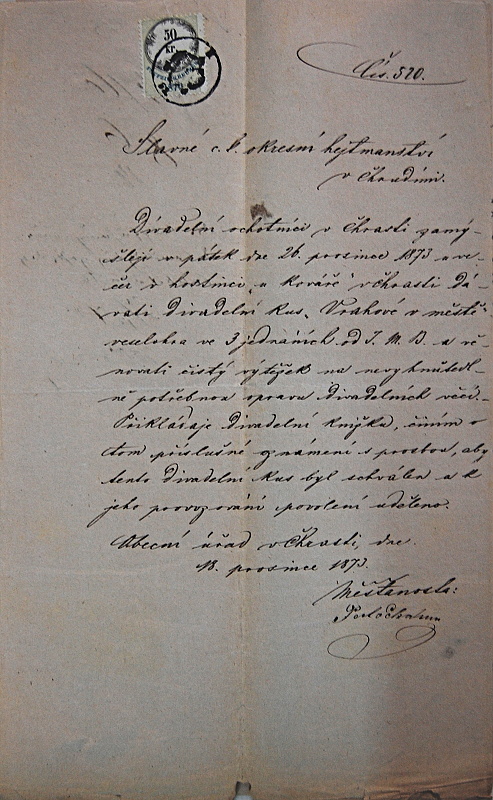 50
kr.
Čís. 520.
Slavné c. k. okresní hejtmanství
v Chrudimi.
Divadelní ochotníci v Chrasti zamý-
šlejí v pátek dne 26. prosince 1873 u ve-
čer v hostinci „u Kováře“ v Chrasti dá-
vati divadelní kus „Vrahové v městě“
veselohra ve 3 jednáních od J. M. B. a vě-
novati čistý výtěžek na nevyhnutedl-
ně potřebnou opravu divadelních věcí.
Přikládaje divadelní knížku, činím o
tom příslušné oznámení s prosbou, aby
tento divadelní kus byl schválen a k
jeho provozování povolení uděleno.
Obecní úřad v Chrasti, dne
18. prosince 1873.
Měšťanosta: